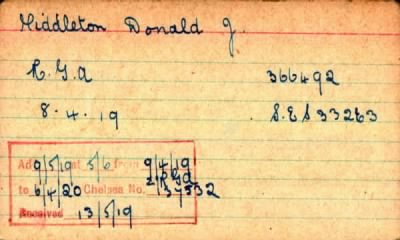 Middleton Donald J.
R.G.A 366492
8.4.19 S.E.S 33263
Ad 9/5/19 at 5/6 from 9/4/19
to 6/4/20 Chelsea No. 37532
Received 13/5/19